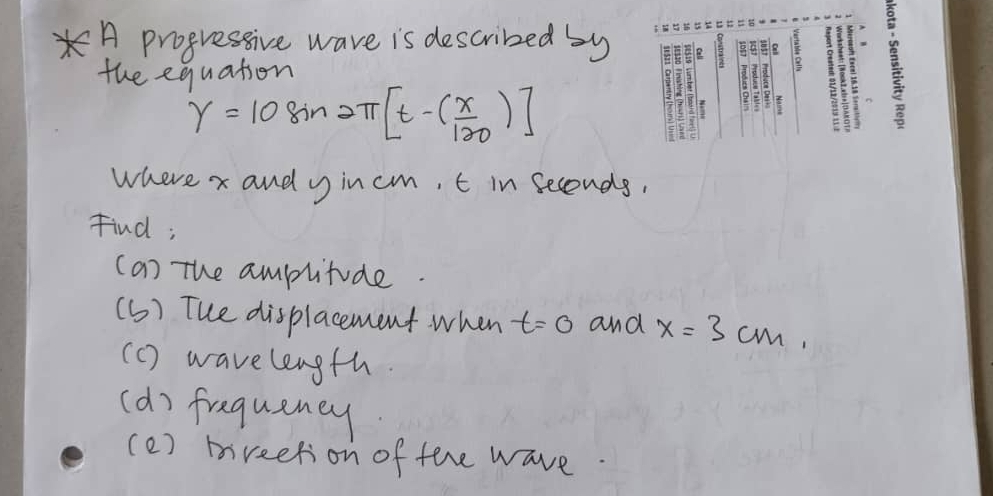 * A progressive wave is described by
the equation
Y = 10 sin 2π [t - (x/120)]
Where x and y in cm, t in seconds,
Find;
(a) The amplitude.
(b) The displacement when t=0 and x = 3 cm,
(c) wavelength.
(d) frequency.
(e) Direction of the wave.
akota - Sensitivity Repo
A B C
1 Microsoft Excel 16.16 Sensitivity
2 Worksheet:
3 Report Created: 
4
5
6 Variable Cells
7
8 Cell Name
9 Produce Desks
10 Produce Tables
11 Produce Chairs
12
13 Constraints
14
15 Cell Name
16 Lumber (board feet)
17 Finishing (hours) Used
18 Carpentry (hours) Used